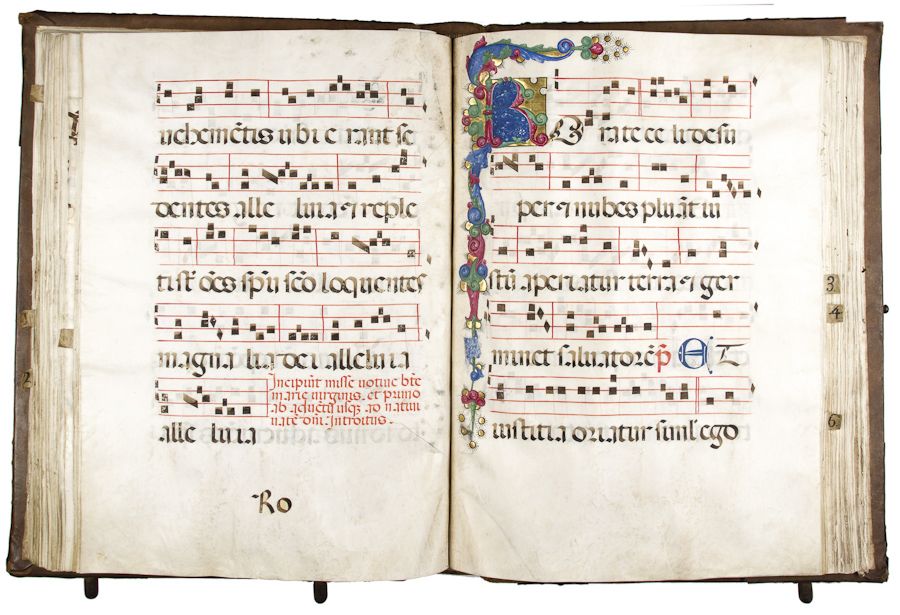 uehemētis ubi e rant se
dentes alle luia ⁊ reple
ti sūt oēs spū scō loquentes
magna lia dei alleluia
Incipiūt misse uotiue bte
marie uirginis. et primo
ab aduētu usqꝫ ad natiui
nate dnī. Introitus.
alle luia
Ro
R O rate celi desu
per ⁊ nubes pluāt iu
stū aperiatur terra ⁊ ger
minet saluatorē ps Et
iustitia oriatur simul ego
3
4
6